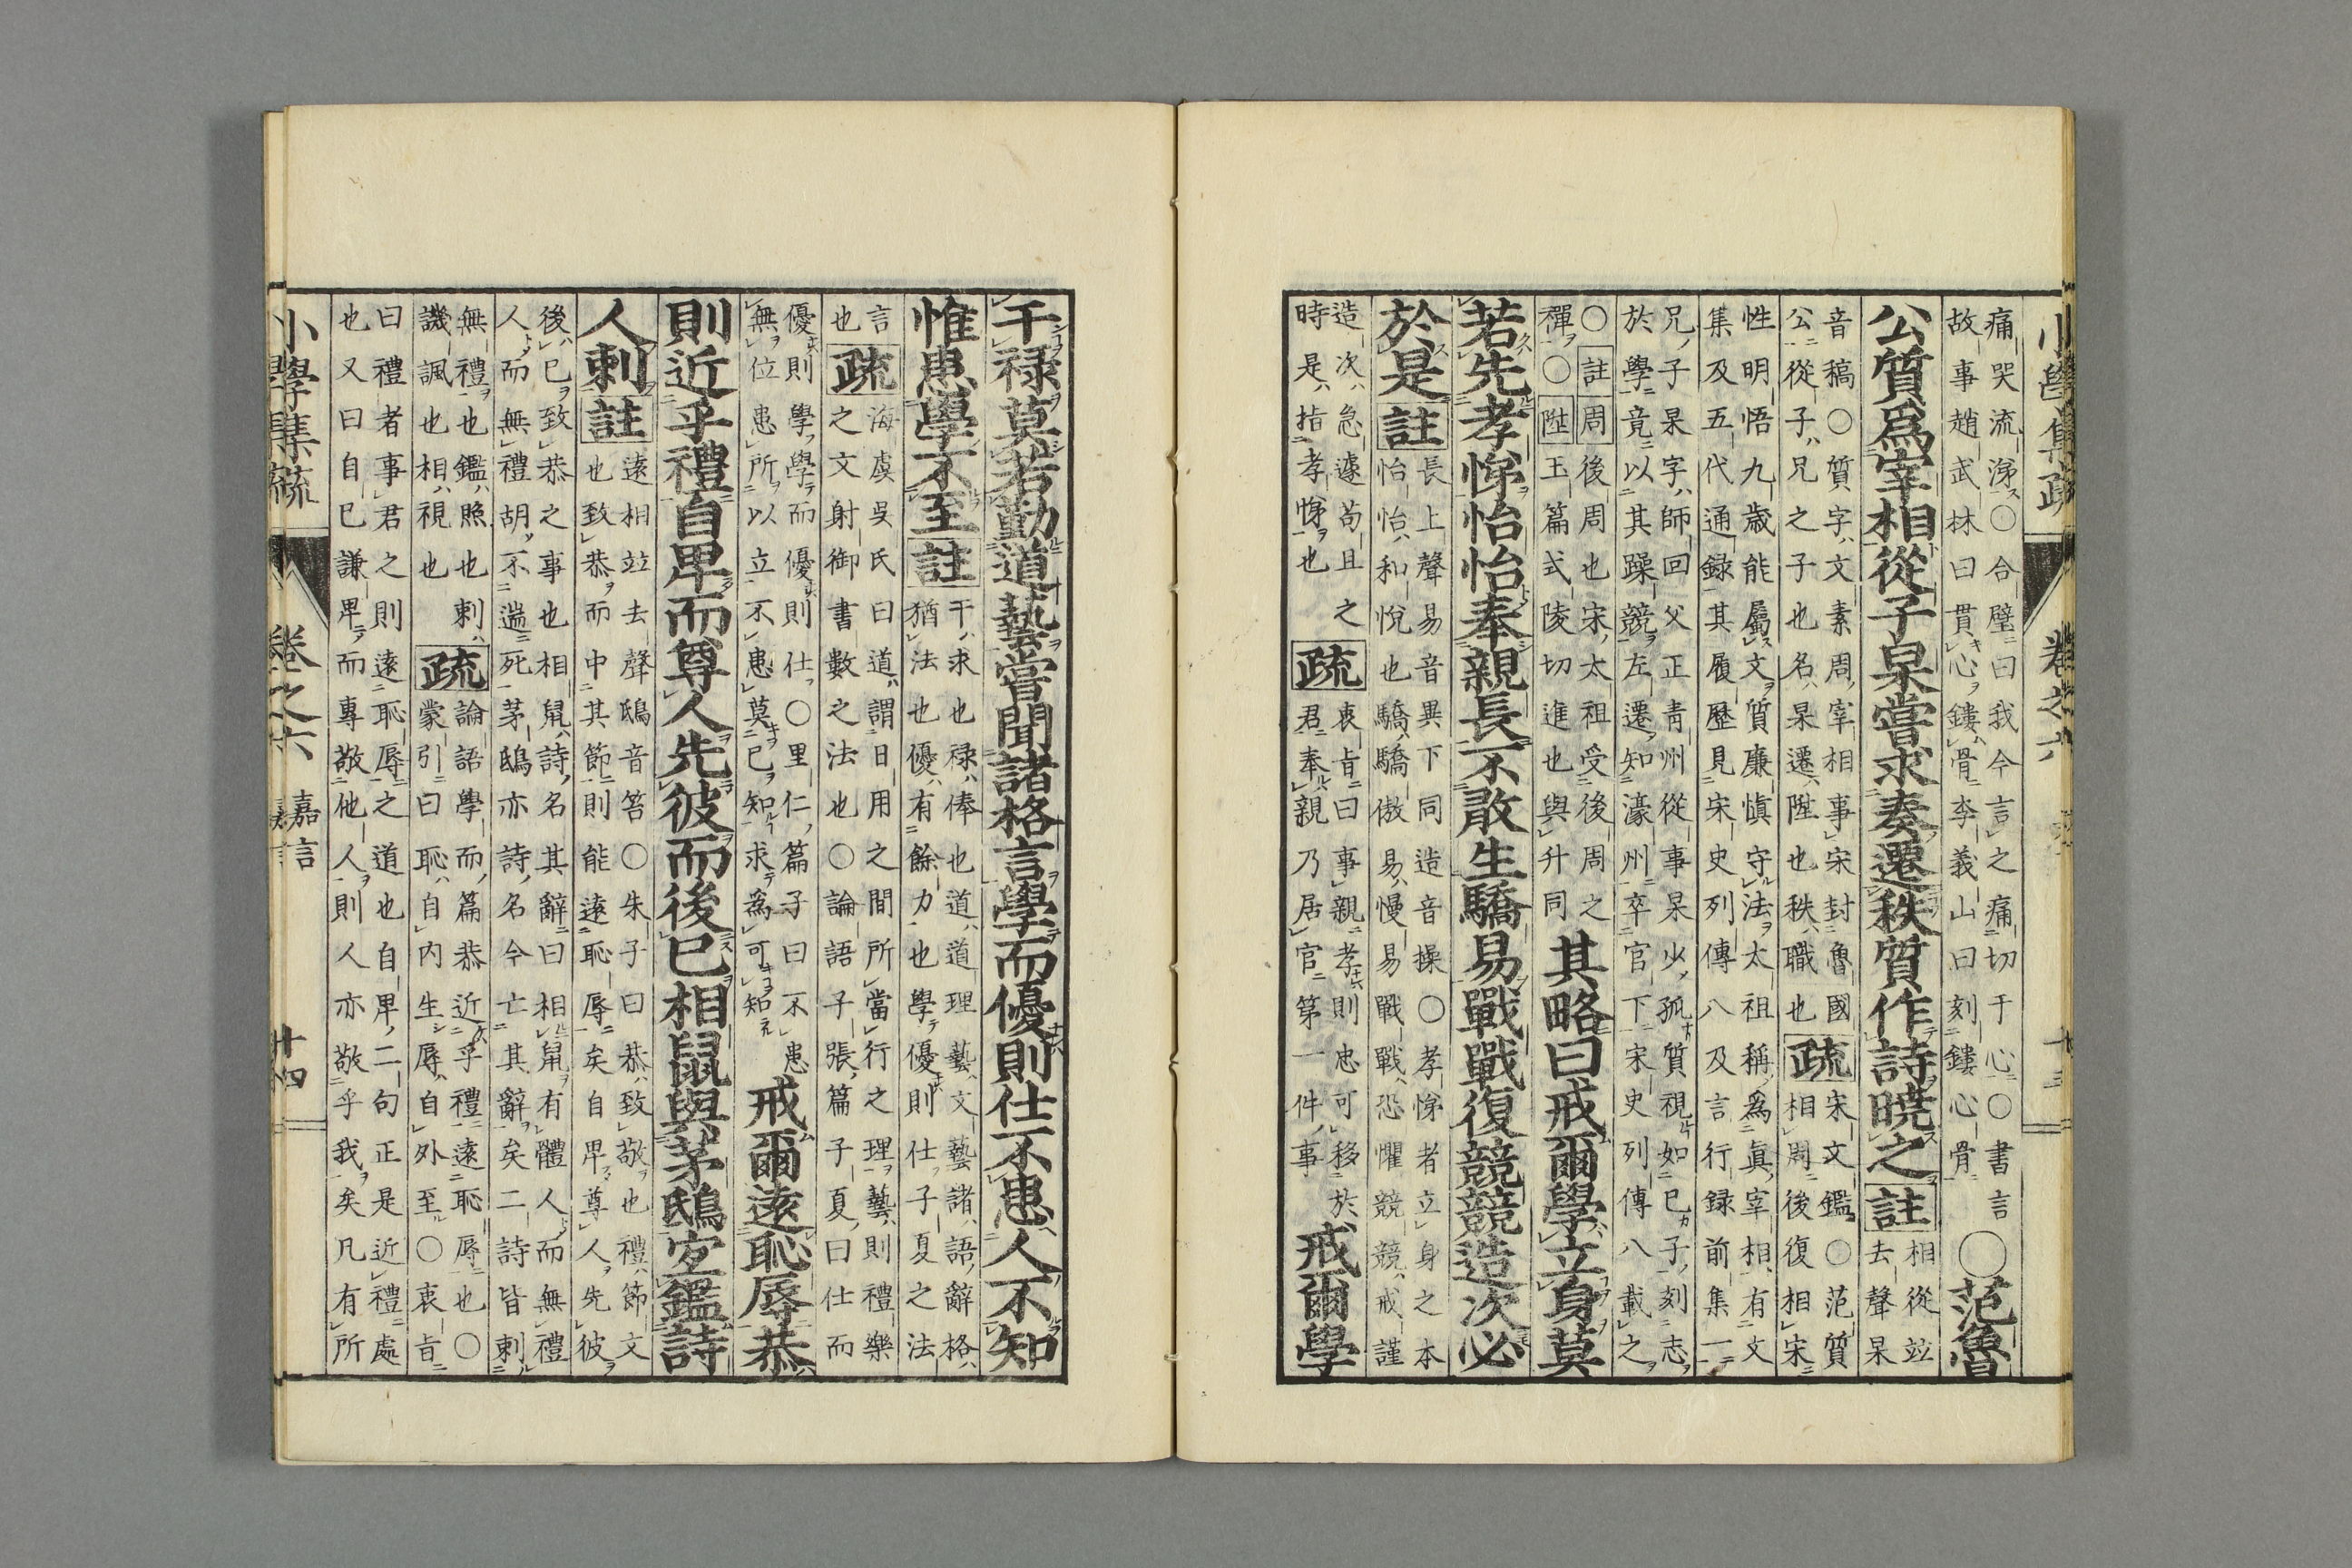 小學集疏 卷之六 十三
痛哭流涕○合璧曰我今言之痛切于心○書言
故事趙武林曰貫心鏤骨李義山曰刻鏤心骨
○范魯
公質爲宰相從子杲嘗求奏遷秩質作詩曉之
註
相從竝
去聲杲
音稿○質字文素周宰相事宋封魯國
公從子兄之子也名杲遷陞也秩職也
疏
宋文鑑○范質
相周後復相宋
性明悟九歲能屬文質廉愼守法太祖稱爲眞宰相有文
集及五代通録其履歷見宋史列傳八及言行録前集一
兄子杲字師回父正靑州從事杲少孤質視如己子刻志
於學竟以其躁競左遷知濠州卒官下宋史列傳八載之
○註周後周也宋太祖受後周之
禪○陞玉篇式陵切進也與升同
其略曰戒爾學立身莫
若先孝悌怡怡奉親長不敢生驕易戰戰復競競造次必
於是
註
長上聲易音異下同造音操○孝悌者立身之本
怡怡和悅也驕驕傲易慢易戰戰恐懼競競戒謹
造次急遽苟且之
時是指孝悌也
疏
衷旨曰事親孝則忠可移於
君奉親乃居官第一件事
戒爾學
干禄莫若勤道藝嘗聞諸格言學而優則仕不患人不知
惟患學不至
註
干求也禄俸也道道理藝文藝諸語辭格
猶法也優有餘力也學優則仕子夏之法
言
也
疏
海虞吳氏曰道謂日用之間所當行之理藝則禮樂
之文射御書數之法也○論語子張篇子夏曰仕而
優則學學而優則仕○里仁篇子曰不患
無位患所以立不患莫己知求爲可知
戒爾遠恥辱恭
則近乎禮自卑而尊人先彼而後己相鼠與茅鴟宜鑑詩
人刺
註
遠相竝去聲鴟音笞○朱子曰恭致敬也禮節文
也致恭而中其節則能遠恥辱矣自卑尊人先彼
後己致恭之事也相鼠詩名其辭曰相鼠有體人而無禮
人而無禮胡不遄死茅鴟亦詩名今亡其辭矣二詩皆刺
無禮也鑑照也刺
譏諷也相視也
疏
論語學而篇恭近乎禮遠恥辱也○
蒙引曰恥自内生辱自外至○衷旨
曰禮者事君之則遠恥辱之道也自卑二句正是近禮處
也又曰自己謙卑而專敬他人則人亦敬乎我矣凡有所
小學集疏 卷之六 嘉言 十四